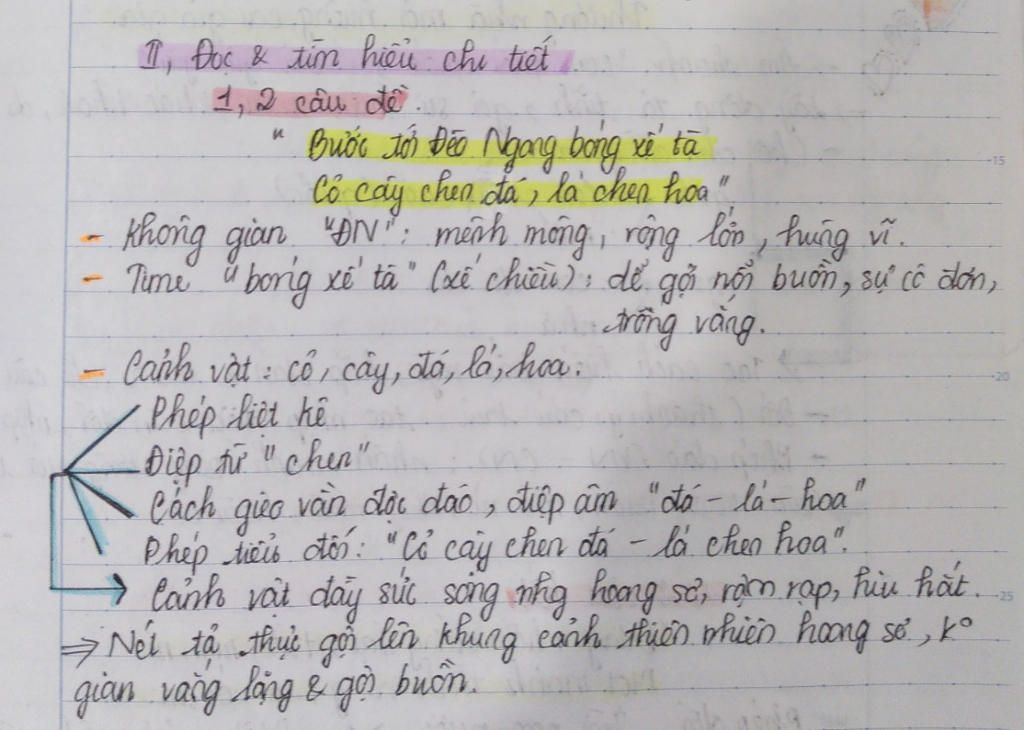 II, Đọc & tìm hiểu chi tiết.
1, 2 câu đề.
" Bước tới Đèo Ngang bóng xế tà
Cỏ cây chen đá, lá chen hoa"
- Không gian "ĐN": mênh mông, rộng lớn, hùng vĩ.
- Time "bóng xế tà" (xế chiều): dễ gợi nỗi buồn, sự cô đơn,
trống vắng.
- Cảnh vật: cỏ, cây, đá, lá, hoa.
Phép liệt kê
Điệp từ "chen"
Cách gieo vần độc đáo, điệp âm "đá - lá - hoa"
Phép tiểu đối: "Cỏ cây chen đá - lá chen hoa".
→ Cảnh vật đầy sức sống nhg hoang sơ, rậm rạp, hiu hắt.
⇒ Nét tả thực gợi lên khung cảnh thiên nhiên hoang sơ, k°
gian vắng lặng & gợi buồn.